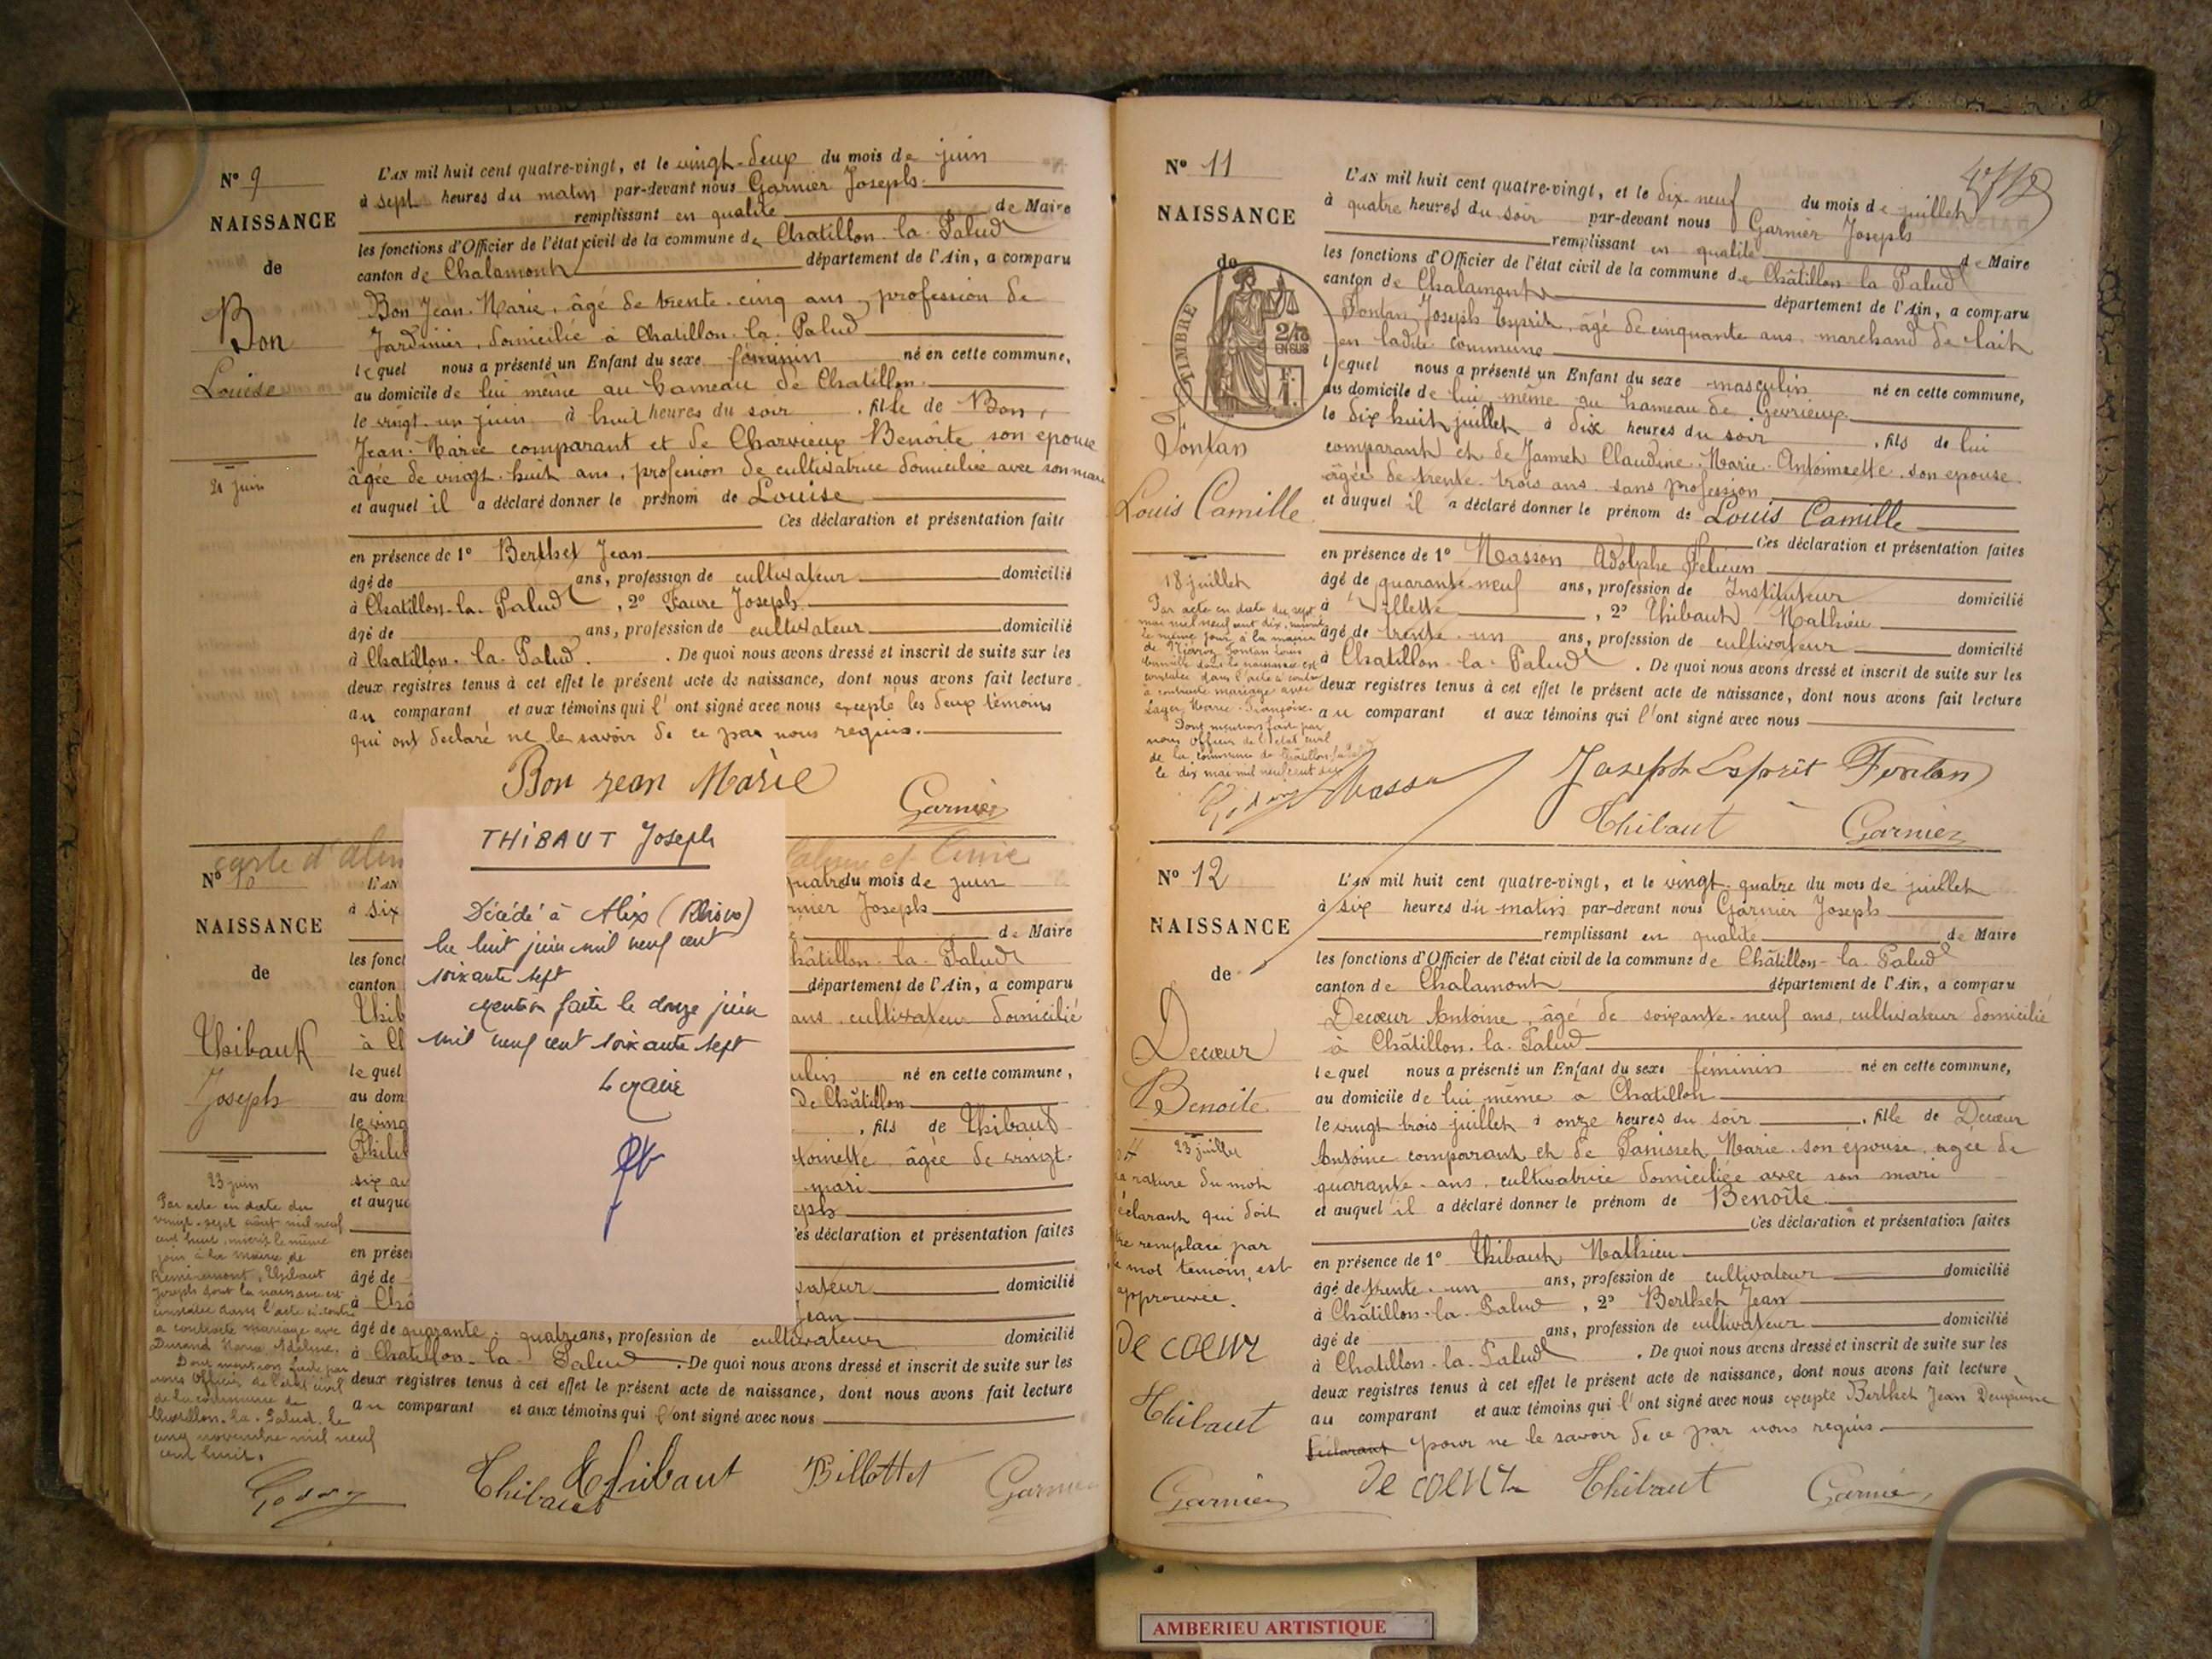 N° 9
NAISSANCE
de
Bon
Louise
21 juin
L'AN mil huit cent quatre-vingt, et le vingt-deux du mois de juin
à sept heures du matin par-devant nous Garnier Joseph
remplissant en qualité de Maire
les fonctions d'Officier de l'état civil de la commune de Chatillon-la-Palud
canton de Chalamont département de l'Ain, a comparu
Bon Jean-Marie, âgé de trente-cinq ans, profession de
Jardinier, domicilié à Chatillon-la-Palud
lequel nous a présenté un Enfant du sexe féminin né en cette commune,
au domicile de lui même au hameau de Chatillon.
le vingt-un juin à huit heures du soir, fille de Bon,
Jean-Marie comparant et de Charvieux Benoîte son epouse
âgée de vingt-huit ans, profession de cultivatrice domicilié avec son mari
et auquel il a déclaré donner le prénom de Louise
Ces déclaration et présentation faite
en présence de 1° Berthet Jean
âgé de ans, profession de cultivateur domicilié
à Chatillon-la-Palud, 2° Faure Joseph
âgé de ans, profession de cultivateur domicilié
à Chatillon-la-Palud. De quoi nous avons dressé et inscrit de suite sur les
deux registres tenus à cet effet le présent acte de naissance, dont nous avons fait lecture
au comparant et aux témoins qui l'ont signé avec nous excepté les deux témoins
qui ont declaré ne le savoir de ce par nous requis.
Bon jean Marie
Garnier
carte d'alim
N° 10
NAISSANCE
de
Thibaut
Joseph
23 juin
Par acte en date du
vingt-sept août mil neuf
cent huit, inscrit le même
jour à la mairie de
Remiremont, Thibaut
Joseph dont la naissance est
constatée dans l'acte ci-contre
a contracté mariage avec
Durand Maria Adeline.
Dont mention faite par
nous Officier de l'état civil
de la commune de
Chatillon-la-Palud le
cinq novembre mil neuf
cent huit.
THIBAUT Joseph
Décédé à Alix (Rhône)
le huit juin mil neuf cent
soixante sept
Mention faite le douze juin
mil neuf cent soixante sept
Le Maire
L'AN
à six
les fonct
canton
Thib
à Ch
lequel
au dom
le ving
Phili
six a
et auque
en prése
âgé de
à Châ
quatre du mois de juin
rnier Joseph
de Maire
hâtillon-la-Palud
département de l'Ain, a comparu
ans cultivateur domicilié
ulin né en cette commune,
de Châtillon
, fils de Thibaut
toinette âgée de vingt-
mari
eph
es déclaration et présentation faites
vateur domicilié
Jean
âgé de quarante-quatre ans, profession de cultivateur domicilié
à Chatillon-la-Palud. De quoi nous avons dressé et inscrit de suite sur les
deux registres tenus à cet effet le présent acte de naissance, dont nous avons fait lecture
au comparant et aux témoins qui l'ont signé avec nous
Thibaut Thibaut Billottet Garnier
N° 11
NAISSANCE
de
TIMBRE
2/10
EN SUS
Fontan
Louis Camille
18 juillet
Par acte en date du sept
mai mil neuf cent dix, inscrit
le même jour à la mairie
de Fontan Louis
Camille dont la naissance est
constatée dans l'acte ci-contre
a contracté mariage avec
Marie-Françoise.
Dont mention faite par
nous Officier de l'état civil
de la commune de Châtillon-la-Palud
le dix mai mil neuf cent dix
L'AN mil huit cent quatre-vingt, et le dix-neuf du mois de juillet
à quatre heures du soir par-devant nous Garnier Joseph
remplissant en qualité de Maire
les fonctions d'Officier de l'état civil de la commune de Châtillon la Palud
canton de Chalamont département de l'Ain, a comparu
Fontan Joseph Esprit, âgé de cinquante ans marchand de lait
en ladite commune
lequel nous a présenté un Enfant du sexe masculin né en cette commune,
au domicile de lui même au hameau de Gevrieux
le dix huit juillet à dix heures du soir, fils de lui
comparant et de Jannet Claudine-Marie-Antoinette son epouse
âgée de trente-trois ans sans profession
et auquel il a déclaré donner le prénom de Louis Camille
Ces déclaration et présentation faites
en présence de 1° Masson Adolphe Félicien
âgé de quarante-neuf ans, profession de Instituteur domicilié
à Villette, 2° Thibaut Mathieu
âgé de trente-un ans, profession de cultivateur domicilié
à Chatillon-la-Palud. De quoi nous avons dressé et inscrit de suite sur les
deux registres tenus à cet effet le présent acte de naissance, dont nous avons fait lecture
au comparant et aux témoins qui l'ont signé avec nous
Masson Joseph Esprit Fontan
Thibaut Garnier
N° 12
NAISSANCE
de
Decœur
Benoîte
23 juillet
la rature du mot
déclarant qui doit
être remplacé par
le mot temoin, est
approuvée.
De coeur
Thibaut
Garnier
L'AN mil huit cent quatre-vingt, et le vingt-quatre du mois de juillet
à six heures du matin par-devant nous Garnier Joseph
remplissant en qualité de Maire
les fonctions d'Officier de l'état civil de la commune de Châtillon-la-Palud
canton de Chalamont département de l'Ain, a comparu
Decœur Antoine, âgé de soixante-neuf ans, cultivateur domicilié
à Châtillon-la-Palud
lequel nous a présenté un Enfant du sexe féminin né en cette commune,
au domicile de lui même a Chatillon
le vingt trois juillet à onze heures du soir, fille de Decœur
Antoine comparant et de Panisset Marie son épouse agée de
quarante-ans, cultivatrice domiciliée avec son mari
et auquel il a déclaré donner le prénom de Benoîte
Ces déclaration et présentation faites
en présence de 1° Thibaut Mathieu
âgé de trente-un ans, profession de cultivateur domicilié
à Châtillon-la-Palud, 2° Berthet Jean
âgé de ans, profession de cultivateur domicilié
à Chatillon-la-Palud. De quoi nous avons dressé et inscrit de suite sur les
deux registres tenus à cet effet le présent acte de naissance, dont nous avons fait lecture
au comparant et aux témoins qui l'ont signé avec nous excepté Berthet Jean Deuxième
déclarant pour ne le savoir de ce par nous requis.
De coeur Thibaut Garnier
AMBERIEU ARTISTIQUE